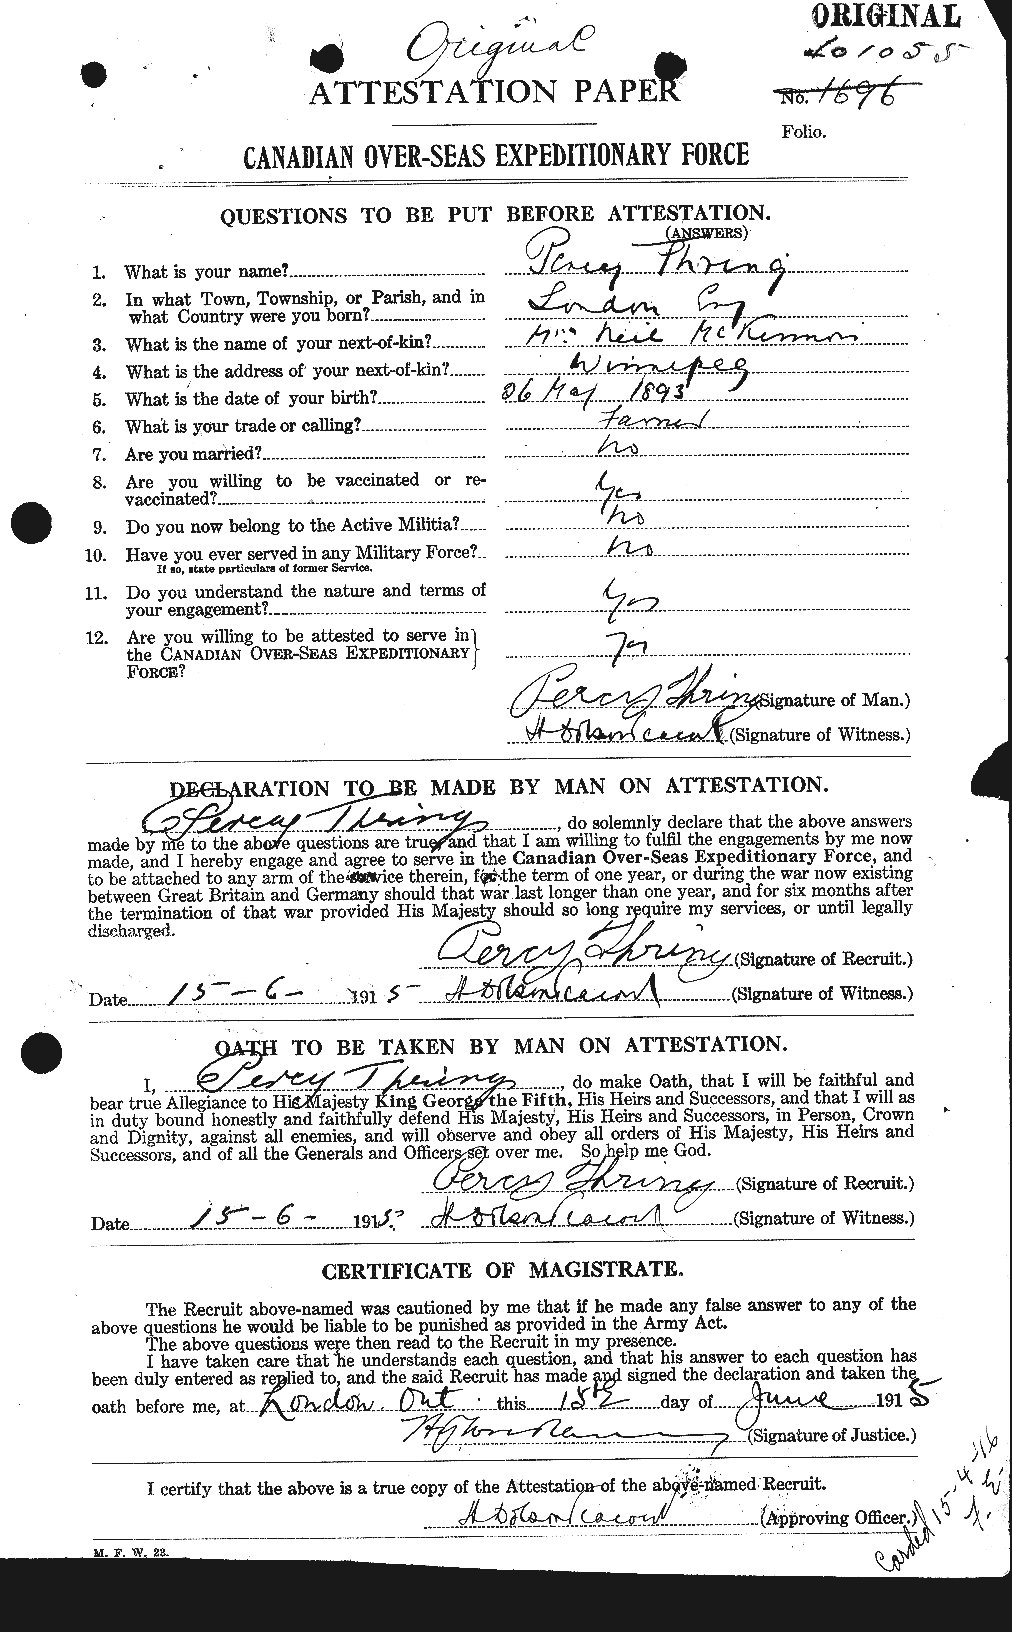 ORIGINAL
Original
ATTESTATION PAPER
No. 1696
Folio.
CANADIAN OVER-SEAS EXPEDITIONARY FORCE
QUESTIONS TO BE PUT BEFORE ATTESTATION.
(ANSWERS)
1. What is your name? Percy Thring
2. In what Town, Township, or Parish, and in
what Country were you born? London Eng
3. What is the name of your next-of-kin? Mrs Neil McKinnon
4. What is the address of your next-of-kin? Winnipeg
5. What is the date of your birth? 06 May 1893
6. What is your trade or calling? Farmer
7. Are you married? no
8. Are you willing to be vaccinated or re-
vaccinated? Yes
9. Do you now belong to the Active Militia? no
10. Have you ever served in any Military Force? no
If so, state particulars of former Service.
11. Do you understand the nature and terms of
your engagement? Yes
12. Are you willing to be attested to serve in
the CANADIAN OVER-SEAS EXPEDITIONARY Yes
FORCE?
Percy Thring (Signature of Man.)
(Signature of Witness.)
DECLARATION TO BE MADE BY MAN ON ATTESTATION.
Percy Thring, do solemnly declare that the above answers
made by me to the above questions are true, and that I am willing to fulfil the engagements by me now
made, and I hereby engage and agree to serve in the Canadian Over-Seas Expeditionary Force, and
to be attached to any arm of the service therein, for the term of one year, or during the war now existing
between Great Britain and Germany should that war last longer than one year, and for six months after
the termination of that war provided His Majesty should so long require my services, or until legally
discharged.
Percy Thring (Signature of Recruit.)
Date 15-6- 1915 (Signature of Witness.)
OATH TO BE TAKEN BY MAN ON ATTESTATION.
I, Percy Thring, do make Oath, that I will be faithful and
bear true Allegiance to His Majesty King George the Fifth, His Heirs and Successors, and that I will as
in duty bound honestly and faithfully defend His Majesty, His Heirs and Successors, in Person, Crown
and Dignity, against all enemies, and will observe and obey all orders of His Majesty, His Heirs and
Successors, and of all the Generals and Officers set over me. So help me God.
Percy Thring (Signature of Recruit.)
Date 15-6- 1915 (Signature of Witness.)
CERTIFICATE OF MAGISTRATE.
The Recruit above-named was cautioned by me that if he made any false answer to any of the
above questions he would be liable to be punished as provided in the Army Act.
The above questions were then read to the Recruit in my presence.
I have taken care that he understands each question, and that his answer to each question has
been duly entered as replied to, and the said Recruit has made and signed the declaration and taken the
oath before me, at London. Ont. this 15th day of June 1915
(Signature of Justice.)
I certify that the above is a true copy of the Attestation of the above-named Recruit.
(Approving Officer.)
M. F. W. 23.
Carded 15-4-16